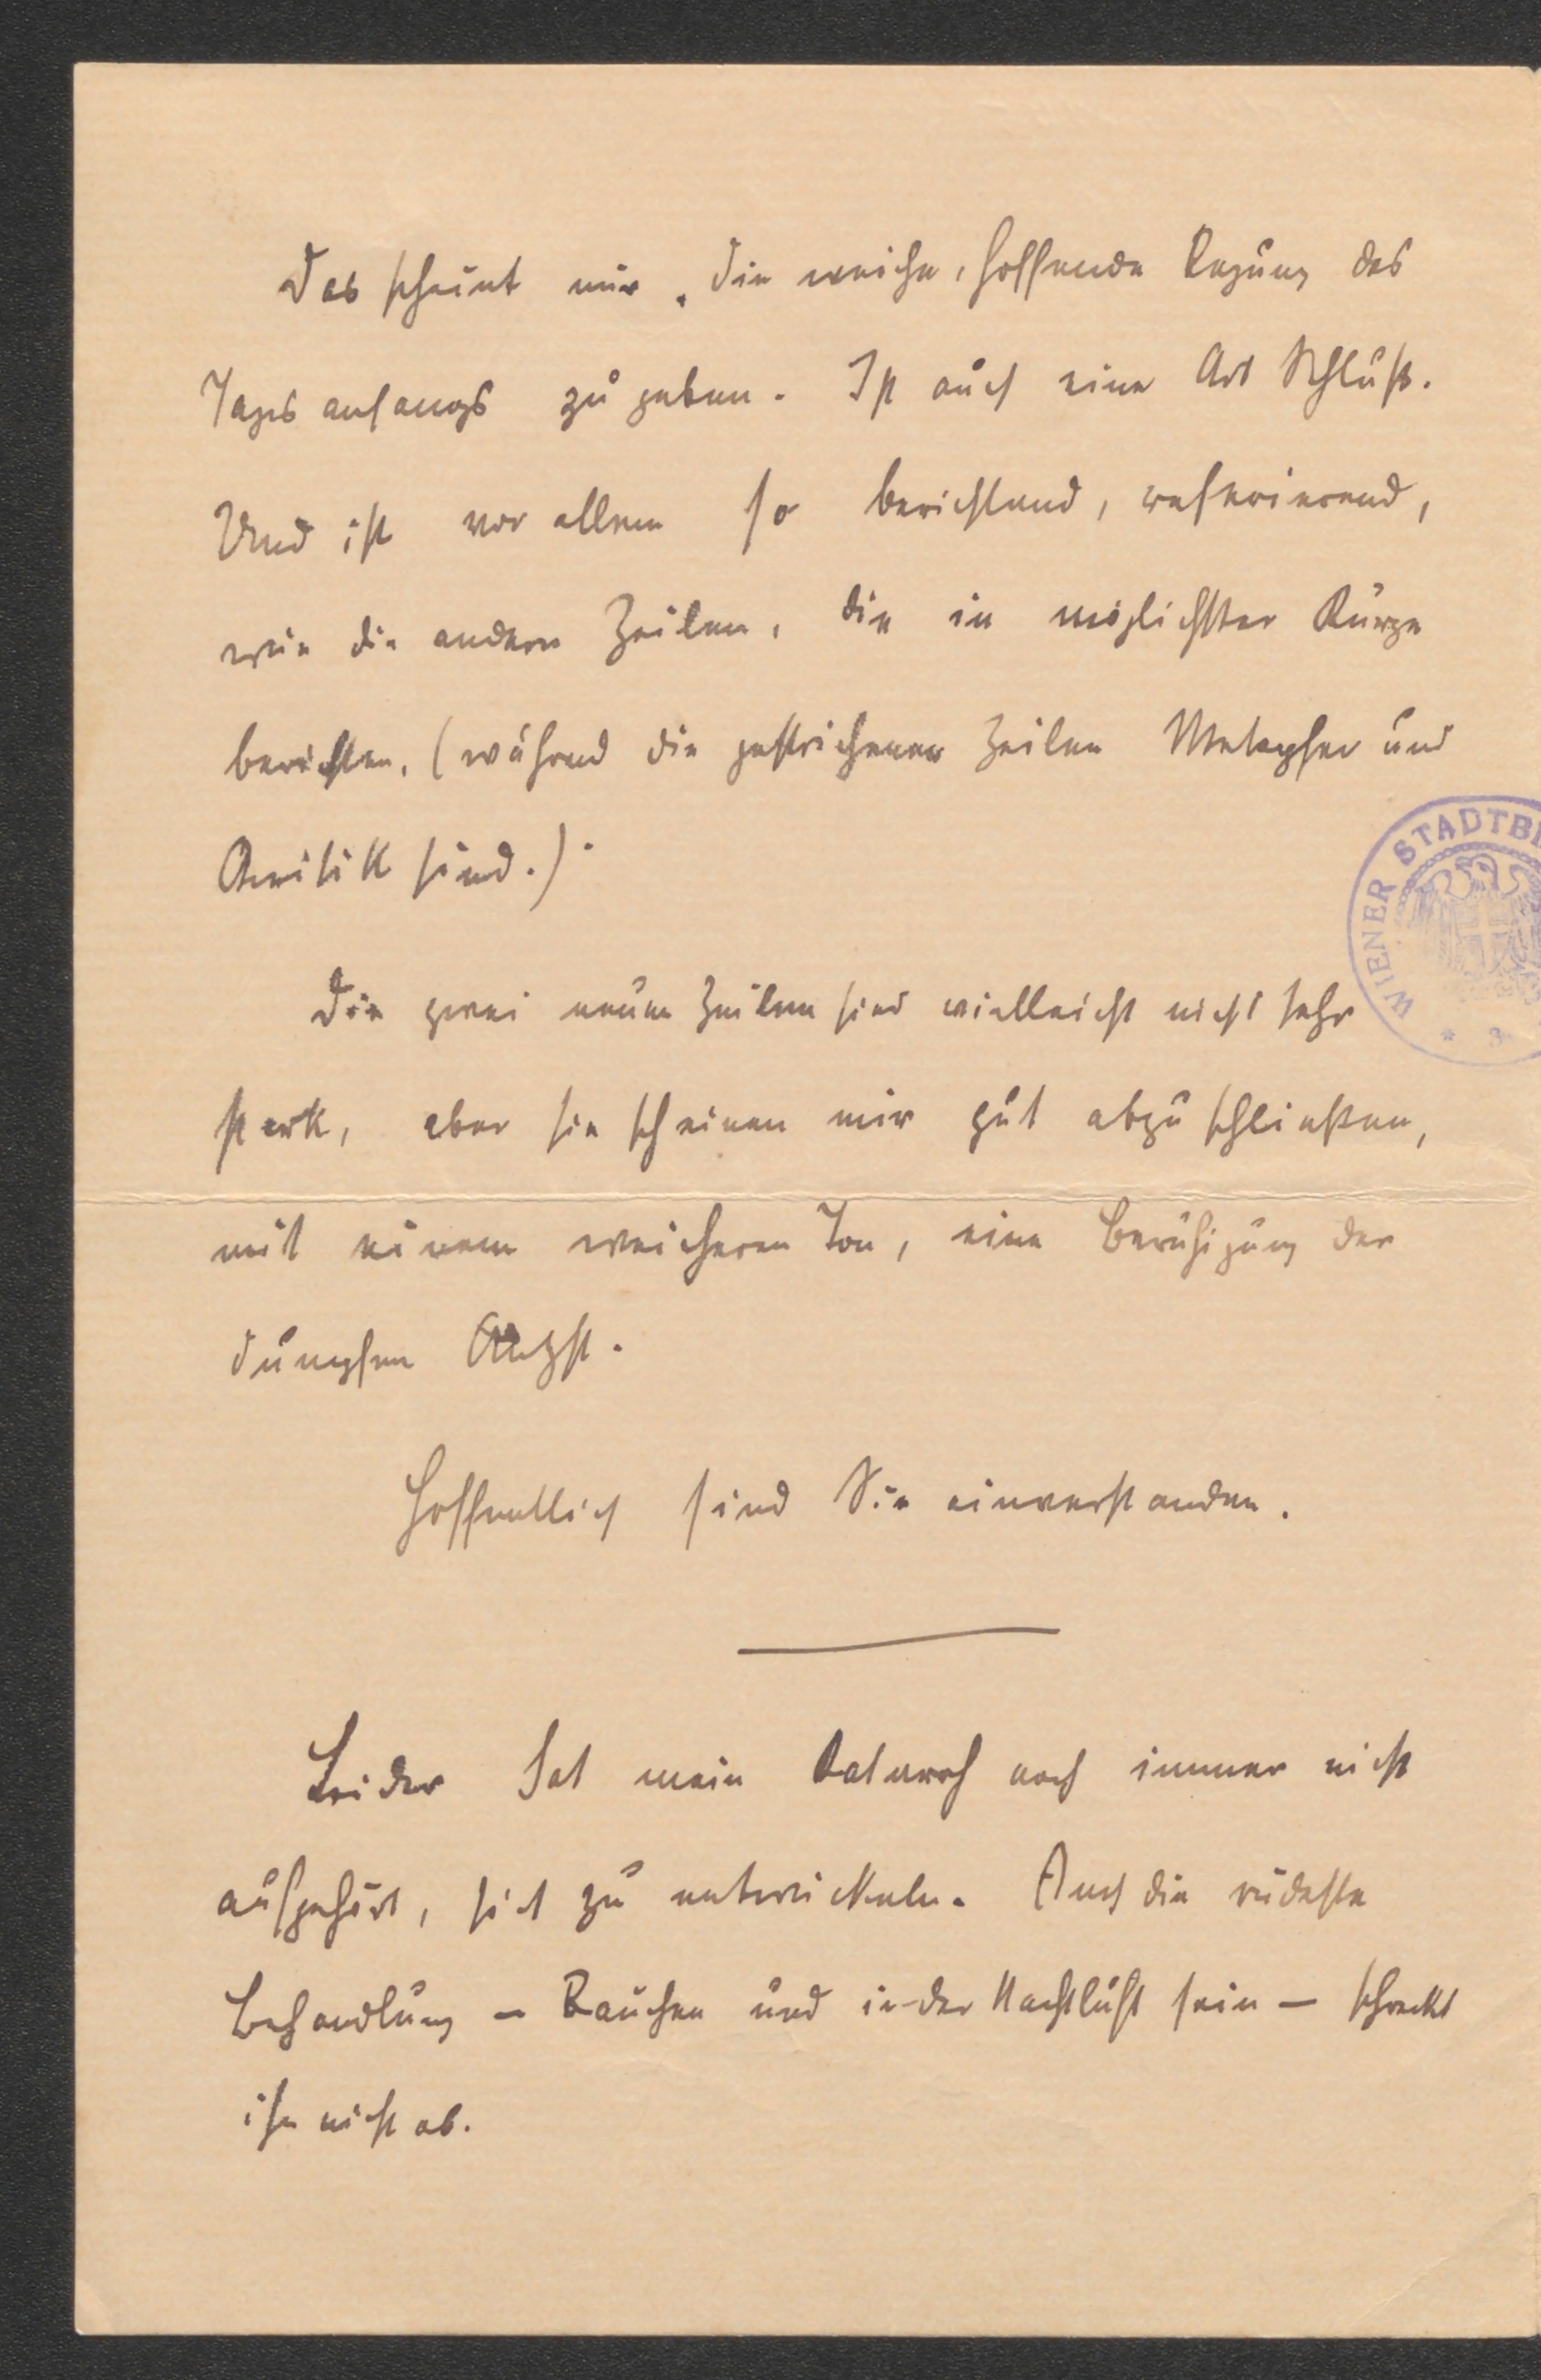 Das scheint mir, die weiche, hoffende Regung des
Tagesanfangs zu geben. Ist auch eine Art Schluß.
Und ist vor allem so berichtend, referierend,
wie die andern Zeilen, die in möglichster Kürze
berichten, (während die gestrichenen Zeilen Metapher und
Kritik sind.)
WIENER STADTBI
* 3
Die zwei neuen Zeilen sind vielleicht nicht sehr
stark, aber sie scheinen mir gut abzuschließen,
mit einem weicheren Ton, eine Beruhigung der
dumpfen Angst.
Hoffentlich sind Sie einverstanden.
Leider hat mein Katarrh noch immer nicht
aufgehört, sich zu entwickeln. Auch die rüdeste
Behandlung – Rauchen und in der Nachtluft sein – schreckt
ihn nicht ab.